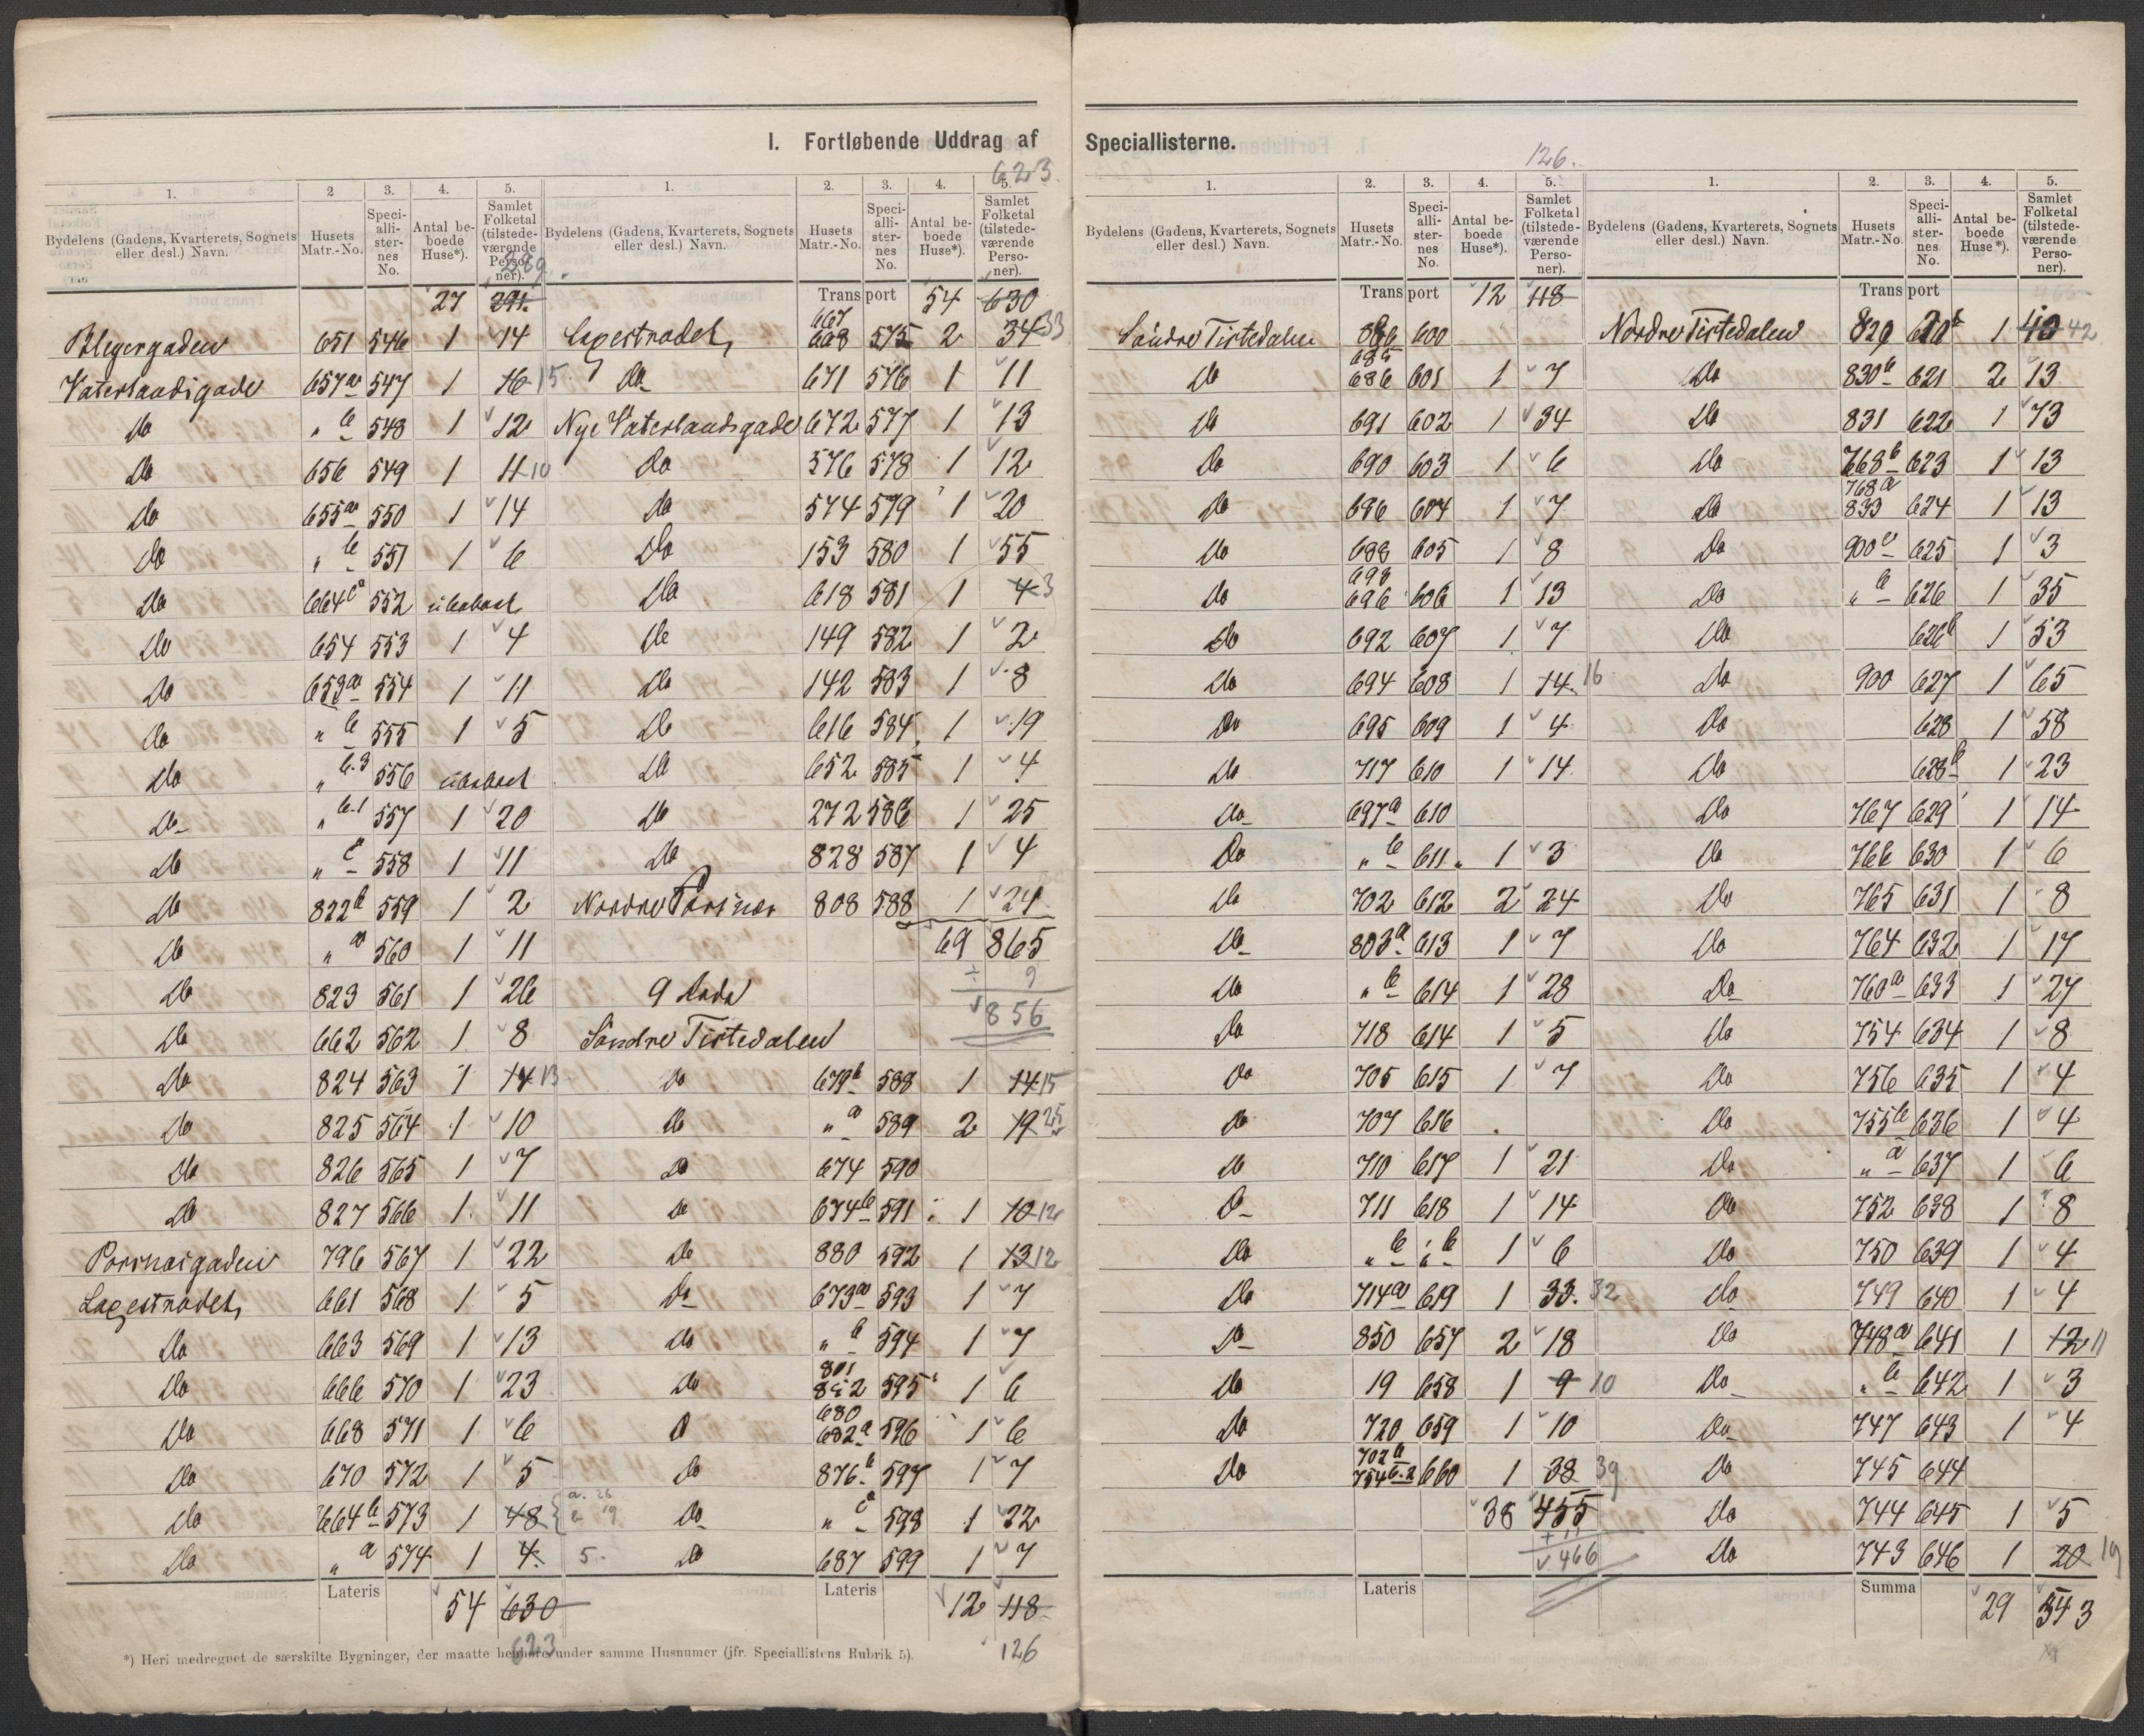 I. Fortløbende Uddrag af Speciallisterne.
623.
1. 2 3. 4. 5.
Bydelens (Gadens, Kvarterets, Sognets eller desl.) Navn. Husets Matr.-No. Speciallisternes No. Antal beboede Huse*). Samlet Folketal (tilstedeværende Personer).
289.
27 291.
651 546 1 14
Vaterlandsgade 657a 547 1 16 15
do " b 548 1 12
do 656 549 1 11 10
do 655a 550 1 14
do " b 551 1 6
do 664c 552 ubeboet
do 654 553 1 4
do 653a 554 1 11
do " b 555 1 5
do " b.3 556 ubeboet
do " b.1 557 1 20
do " c 558 1 11
do 822b 559 1 2
do " a 560 1 11
do 823 561 1 26
do 662 562 1 8
do 824 563 1 14 13
do 825 564 1 10
do 826 565 1 7
do 827 566 1 11
Porsnæsgaden 796 567 1 22
Lagestrædet 661 568 1 5
do 663 569 1 13
do 666 570 1 23
do 668 571 1 6
do 670 572 1 5
do 664b 573 1 48 a. 26 b 19
do " a 574 1 4. 5
Lateris 54 630
623
1. 2. 3. 4. 5.
Bydelens (Gadens, Kvarterets, Sognets eller desl.) Navn. Husets Matr.-No. Speciallisternes No. Antal beboede Huse*). Samlet Folketal (tilstedeværende Personer).
Transport 54 630
Lagestrædet 667 668 575 2 34 33
do 671 576 1 11
Nye Vaterlandsgade 672 577 1 13
do 576 578 1 12
do 574 579 1 20
do 153 580 1 55
do 618 581 1 4 3
do 149 582 1 2
do 142 583 1 8
do 616 584 1 19
do 652 585 1 4
do 272 586 1 25
do 828 587 1 4
Nordre Porsnæs 808 588 1 24
69 865
÷ 9
9 døde 856
Søndre Tistedalen
do 679b 588 1 14 15
do " a 589 2 19 25
do 674 590
do 674b 591 1 10 12
do 880 592 1 13 12
do 673a 593 1 7
do " b 594 1 7
do 801 595 1 6
do 680 682a 596 1 6
do 876b 597 1 7
do " c 598 1 22
do 687 599 1 7
Lateris 12 118
126
*) Heri medregnet de særskilte Bygninger, der maatte henhøre under samme Husnumer (jfr. Speciallistens Rubrik 5).
126.
1. 2. 3. 4. 5.
Bydelens (Gadens, Kvarterets, Sognets eller desl.) Navn. Husets Matr.-No. Speciallisternes No. Antal beboede Huse*). Samlet Folketal (tilstedeværende Personer).
Transport 12 118
Søndre Tistedalen 600
do 685 686 601 1 7
do 691 602 1 34
do 690 603 1 6
do 696 604 1 7
do 688 605 1 8
do 698 696 606 1 13
do 692 607 1 7
do 694 608 1 14 16
do 695 609 1 4
do 717 610 1 14
do 697a 610
do " b 611 1 3
do 702 612 2 24
do 803a 613 1 7
do " b 614 1 28
do 718 614 1 5
do 705 615 1 7
do 707 616
do 710 617 1 21
do 711 618 1 14
do " b " b 1 6
do 714a 619 1 33. 32
do 850 657 2 18
do 19 658 1 9 10
do 720 659 1 10
do 702b 754b.2 660 1 38 39
38 455
+ 11
466
Lateris
1. 2. 3. 4. 5.
Bydelens (Gadens, Kvarterets, Sognets eller desl.) Navn. Husets Matr.-No. Speciallisternes No. Antal beboede Huse*). Samlet Folketal (tilstedeværende Personer).
Transport
Nordre Tistedalen 829 620b 1 40 42
do 830b 621 2 13
do 831 622 1 73
do 768b 623 1 13
do 768a 833 624 1 13
do 900a 625 1 3
do " b 626 1 35
do 626b 1 53
do 900 627 1 65
do 628 1 58
do 628b 1 23
do 767 629 1 14
do 766 630 1 6
do 765 631 1 8
do 764 632 1 17
do 760a 633 1 27
do 754 634 1 8
do 756 635 1 4
do 755b 636 1 4
do " a 637 1 6
do 752 638 1 8
do 750 639 1 4
do 749 640 1 4
do 748a 641 1 12 11
do " b 642 1 3
do 747 643 1 4
do 745 644
do 744 645 1 5
do 743 646 1 20 19
Summa 29 543